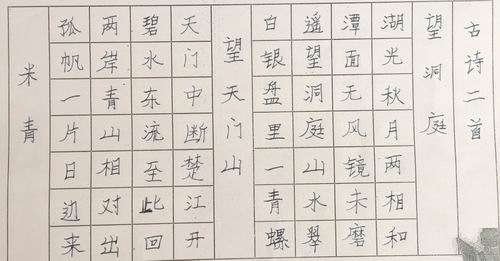 古诗二首
望洞庭
湖光秋月两相和
潭面无风镜未磨
遥望洞庭山水翠
白银盘里一青螺
望天门山
天门中断楚江开
碧水东流至此回
两岸青山相对出
孤帆一片日边来
米青